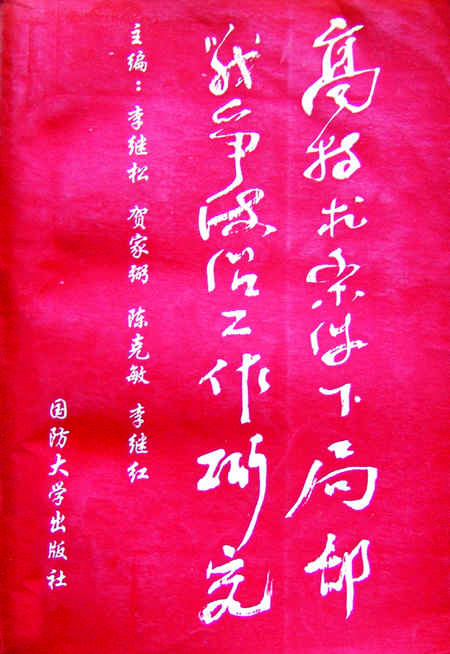 高技术条件下局部
战争政治工作研究
主编：李继松 贺家弼 陈克敏 李继红
国防大学出版社